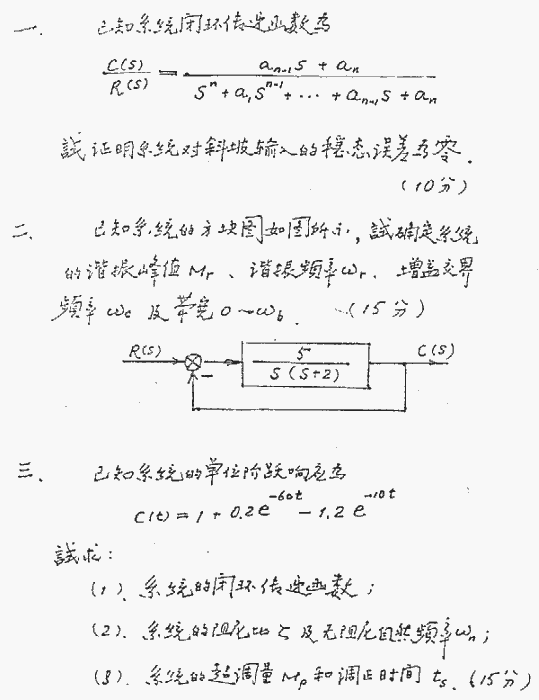 一、 已知系统闭环传递函数为
C(S)/R(S) = (aₙ₋₁S + aₙ)/(Sⁿ + a₁Sⁿ⁻¹ + ··· + aₙ₋₁S + aₙ)
試证明系统对斜坡输入的稳态误差为零.
(10分)
二、 已知系统的方块图如图所示,試确定系统
的谐振峰值 Mr、谐振频率ωr、增益交界
频率 ωc 及带宽 0~ωb. (15分)
R(S) 5/(S(S+2)) C(S)
−
三、 已知系统的单位阶跃响应为
C(t) = 1 + 0.2e⁻⁶⁰ᵗ − 1.2e⁻¹⁰ᵗ
試求:
(1)、系统的闭环传递函数;
(2)、系统的阻尼比ζ及无阻尼自然频率ωn;
(3)、系统的超调量 Mp 和调正时间 ts. (15分)